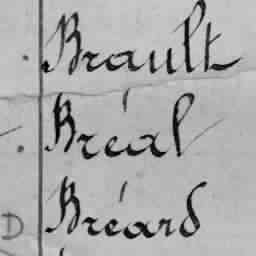 Brault
Bréal
D Bréard